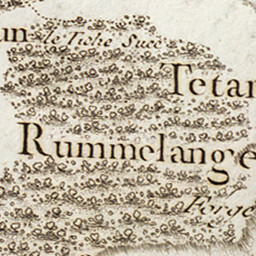 un
le Tiche Succ
Tetan
Rummelange
Forge